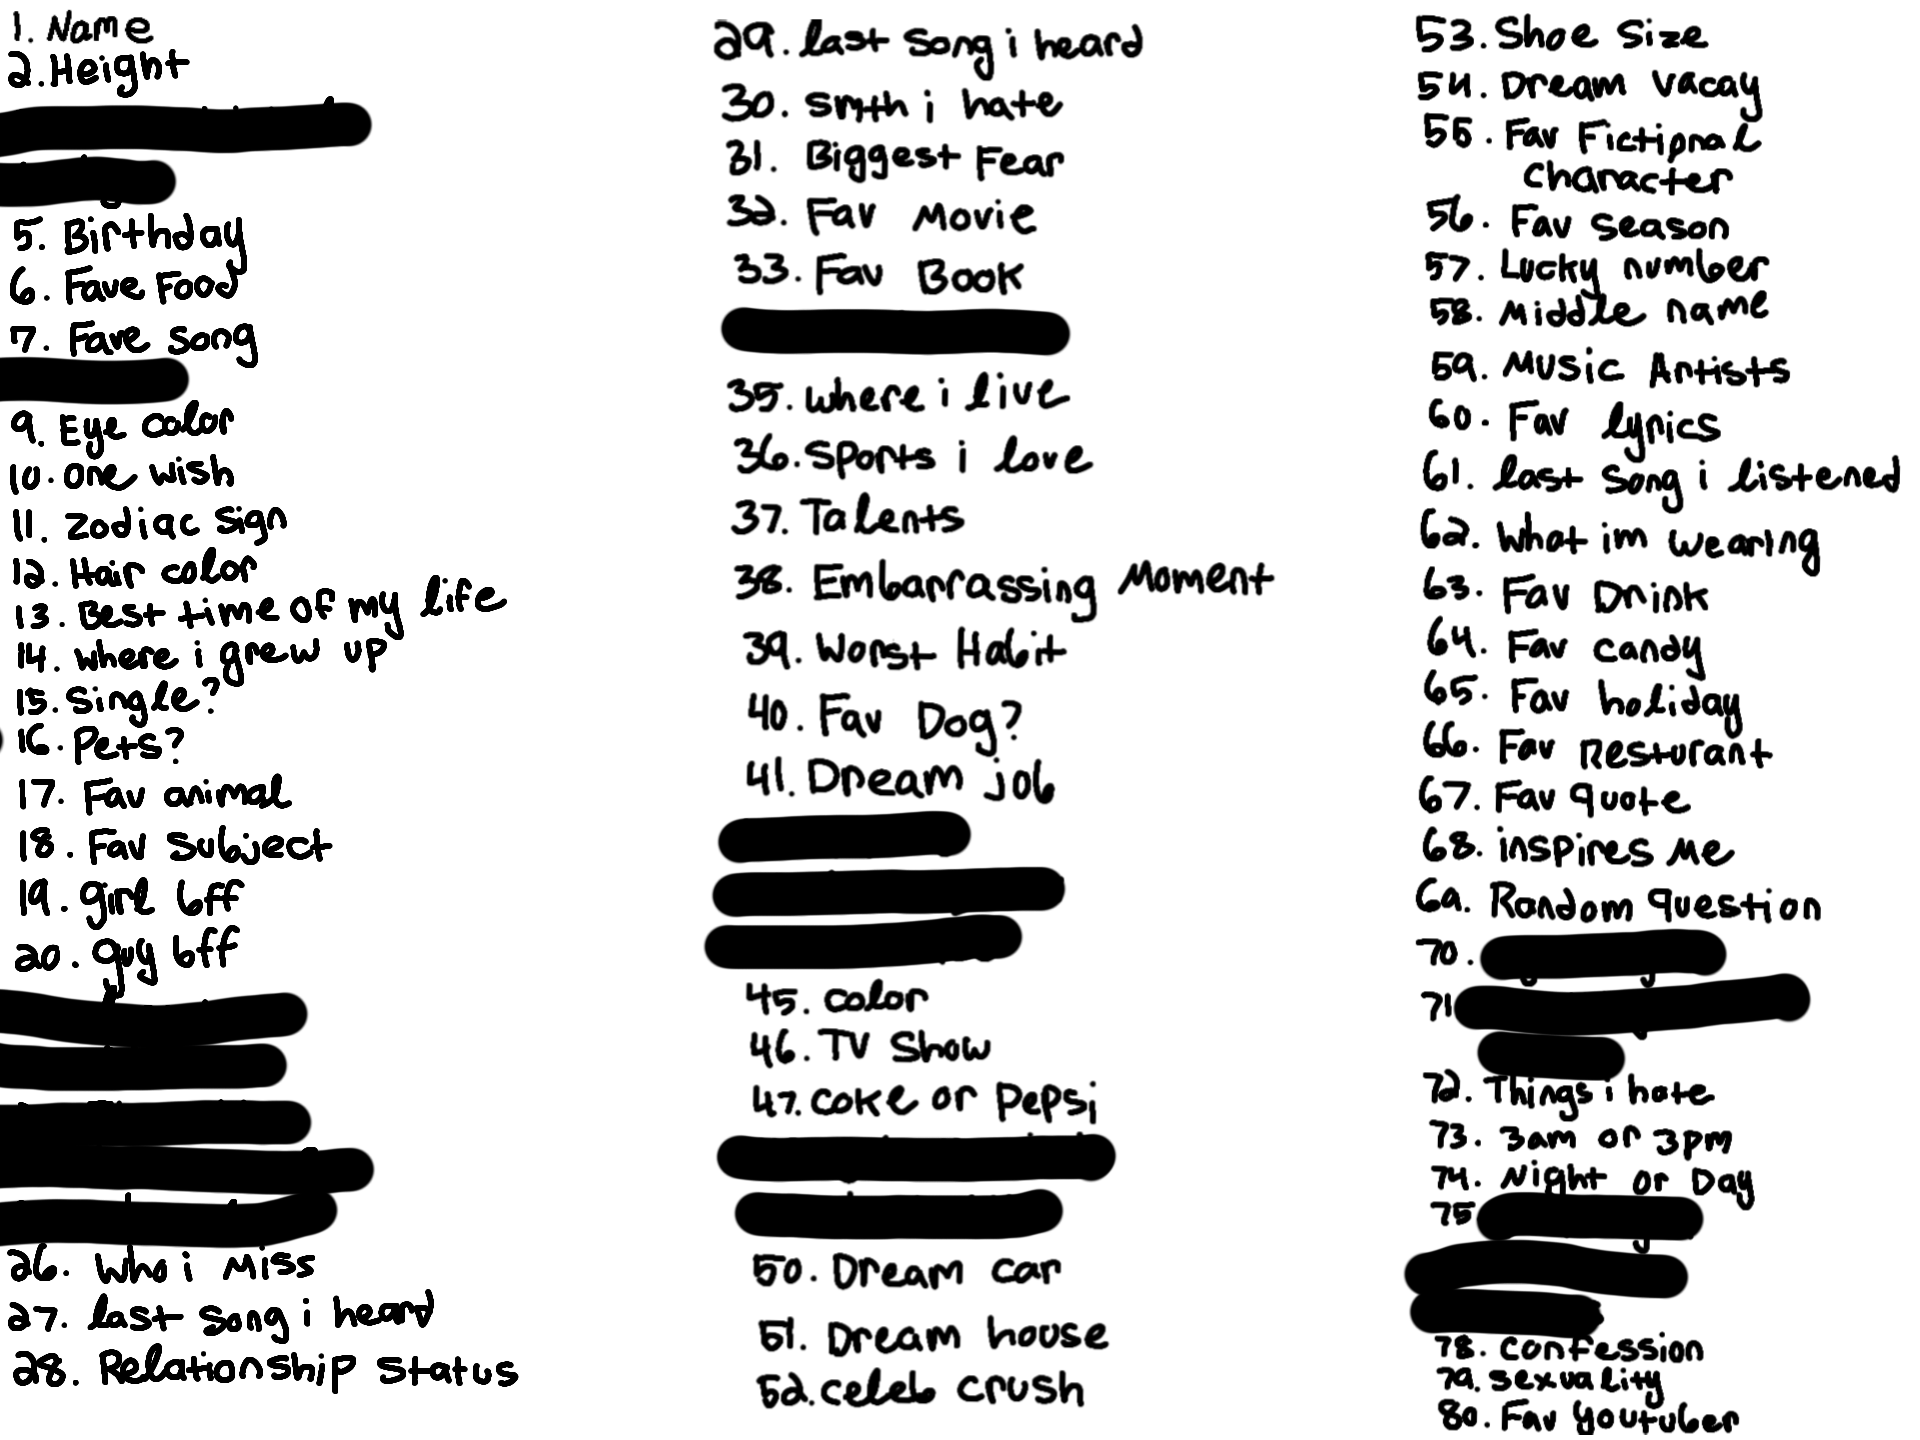 1. Name
2. Height
5. Birthday
6. Fave Food
7. Fave song
9. Eye color
10. one wish
11. zodiac sign
12. Hair color
13. Best time of my life
14. where i grew up
15. single?
16. Pets?
17. Fav animal
18. Fav subject
19. girl bff
20. guy bff
26. Who i Miss
27. last song i heard
28. Relationship status
29. last song i heard
30. smth i hate
31. Biggest Fear
32. Fav Movie
33. Fav Book
35. where i live
36. Sports i love
37. Talents
38. Embarrassing Moment
39. Worst Habit
40. Fav Dog?
41. Dream job
45. color
46. TV Show
47. Coke or Pepsi
50. Dream car
51. Dream house
52. celeb crush
53. Shoe Size
54. Dream vacay
55. Fav Fictional
character
56. Fav season
57. Lucky number
58. Middle name
59. Music Artists
60. Fav lyrics
61. last song i listened
62. What im wearing
63. Fav Drink
64. Fav candy
65. Fav holiday
66. Fav Resturant
67. Fav quote
68. inspires me
69. Random question
70.
71
72. Things i hate
73. 3am or 3pm
74. Night or Day
75
78. confession
79. sexuality
80. Fav youtuber